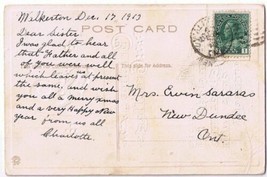 Milkerton Dec. 17, 1913
POST CARD
Dear Sister
I was glad to hear
that Father and all
of you were well
which leave at present
the same, and wish
you all a merry xmas
and a very Happy New
year from us all
Charlotte
This side for address.
Mrs. Ervin Sararas
New Dundee
Ont.
1